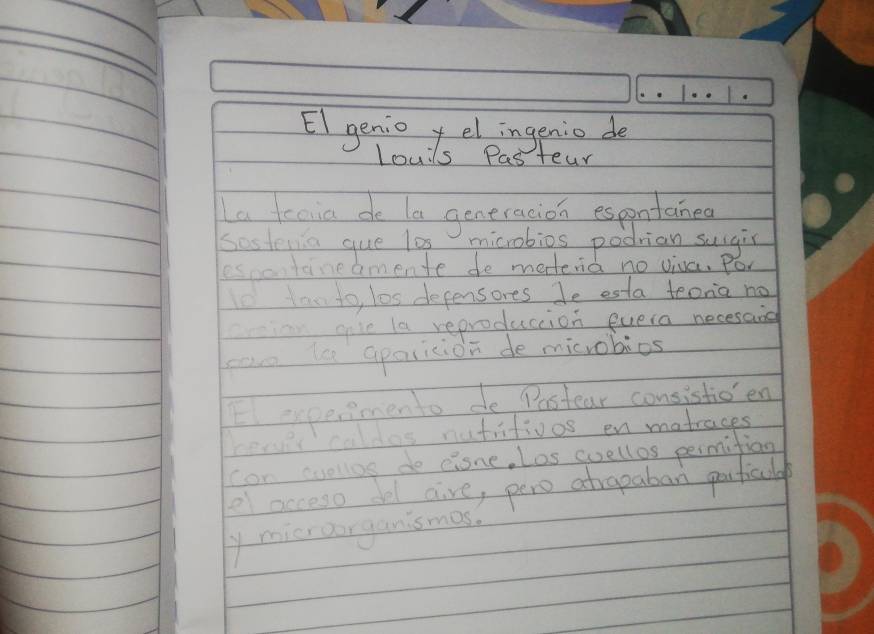 El genio y el ingenio de
Louis Pasteur
La teoria de la generación espontánea
sostenía que los microbios podrian surgir
espontáneamente de materia no viva. Por
lo tanto, los defensores de esta teoria no
creian que la reproducción fuera necesaria
para la aparición de microbios
El experimento de Pasteur consistió en
hervir caldos nutritivos en matraces
con cuellos de cisne. Los cuellos permitian
el acceso del aire, pero atrapaban particulas
y microorganismos.